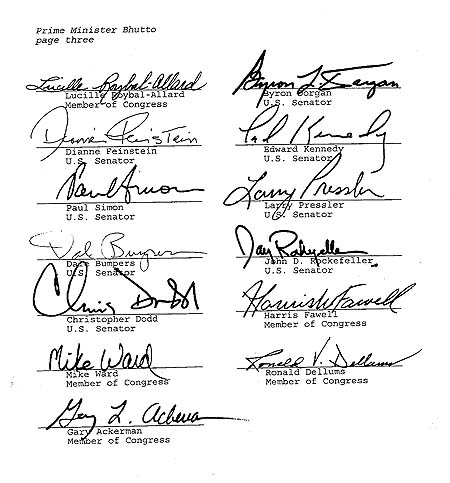 Prime Minister Bhutto
page three
Lucille Roybal-Allard
Lucille Roybal-Allard
Member of Congress
Byron L. Dorgan
Byron Dorgan
U.S. Senator
Dianne Feinstein
Dianne Feinstein
U.S. Senator
Ted Kennedy
Edward Kennedy
U.S. Senator
Paul Simon
Paul Simon
U.S. Senator
Larry Pressler
Larry Pressler
U.S. Senator
Dale Bumpers
Dale Bumpers
U.S. Senator
Jay Rockefeller
John D. Rockefeller
U.S. Senator
Chris Dodd
Christopher Dodd
U.S. Senator
Harris W Fawell
Harris Fawell
Member of Congress
Mike Ward
Mike Ward
Member of Congress
Ronald V. Dellums
Ronald Dellums
Member of Congress
Gary L. Ackerman
Gary Ackerman
Member of Congress